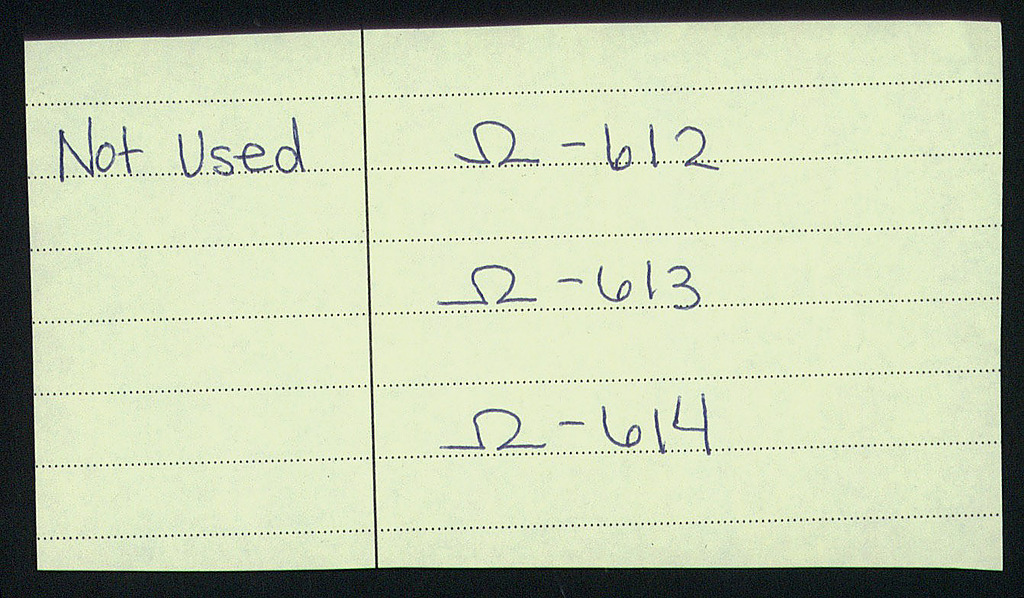 Not Used Ω-612
Ω-613
Ω-614